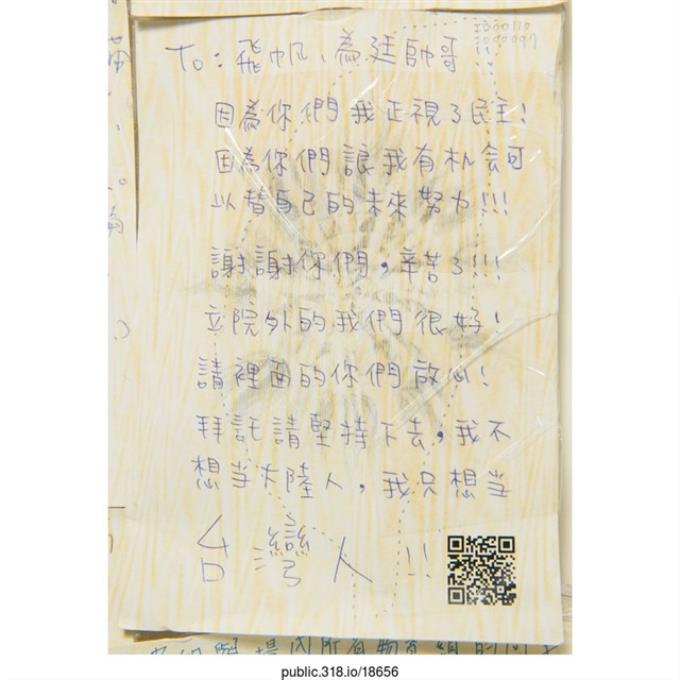 To：飛帆、為廷帥哥!!
因為你們我正視了民主!
因為你們讓我有机会可
以替自己的未來努力!!!
謝謝你們，辛苦了!!!
立院外的我們很好!
請裡面的你們放心!
拜託請堅持下去，我不
想当大陸人，我只想当
台灣人!!
public.318.io/18656